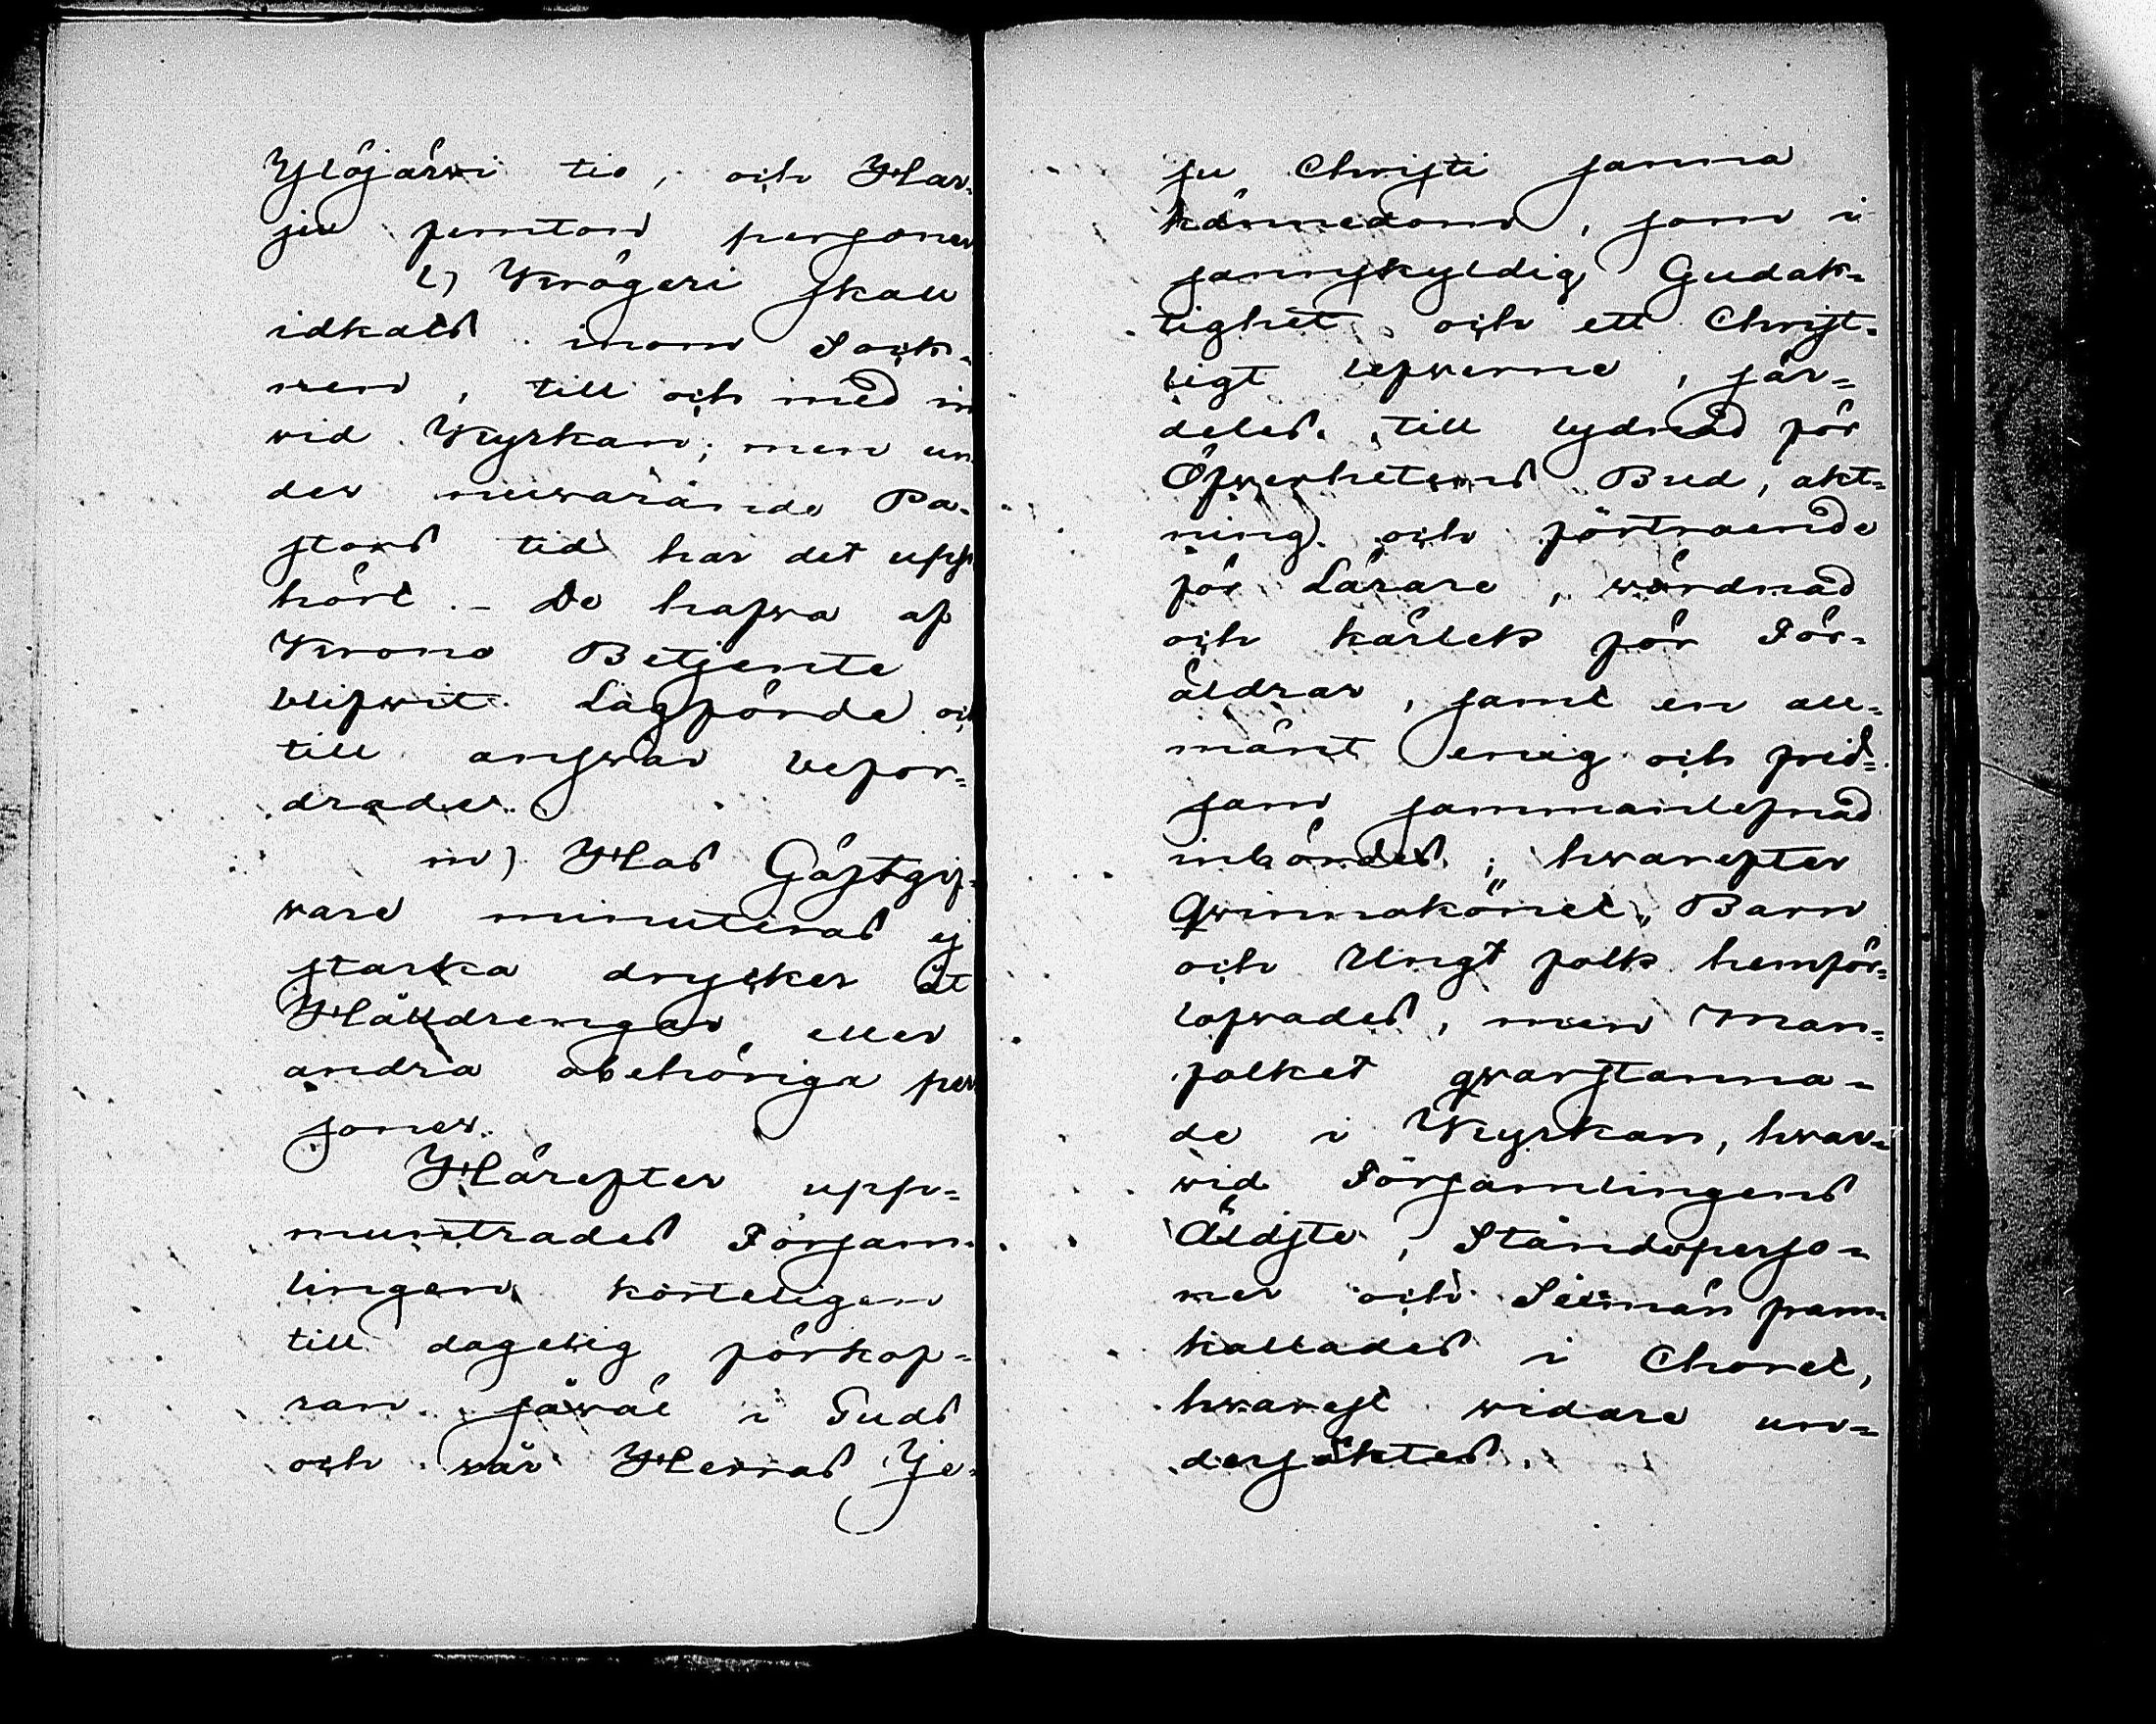 Ylöjärwi tio, och Har-
ju femton personer
l) Krögeri skall
idkats inom Sock-
nen, till och med in
wid Kyrkan; men un
der nuwarande Pa-
stors tid har det upp
hört. - De hafwa af
Krono Betjente
blifwit Lagförde och
till answar befor-
drade.
m) Hos Gästgif-
vare minuteras ej
starka drycker åt
Hålldrengar eller
andra obehöriga per
soner.
Härefter upp-
muntrades Försam-
lingen körteligen
till dagelig förkof-
ran såwäl i Guds
och wår Herras Je-
su Christi sanna
kännedom, som i
sannskyldig Gudak-
tighet och ett Christ-
ligt lefwerne, sär-
deles till lydnad för
Öfwerhetens Bud, akt-
ning och förtroende
för Lärare, wördnad
och kärlek för För-
äldrar, samt en all-
mänt enig och frid-
sam sammanlefnad
inbördes; hwarefter
Qwinnokönet, Barn
och Ungt folk hemför-
lofwades, men Man-
folket qwarstanna-
de i Kyrkan, hwar-
wid Församlingens
Äldste, Ståndsperso-
ner och Sexmän fram
kallades i Choret,
hwarest widare un-
dersöktes.